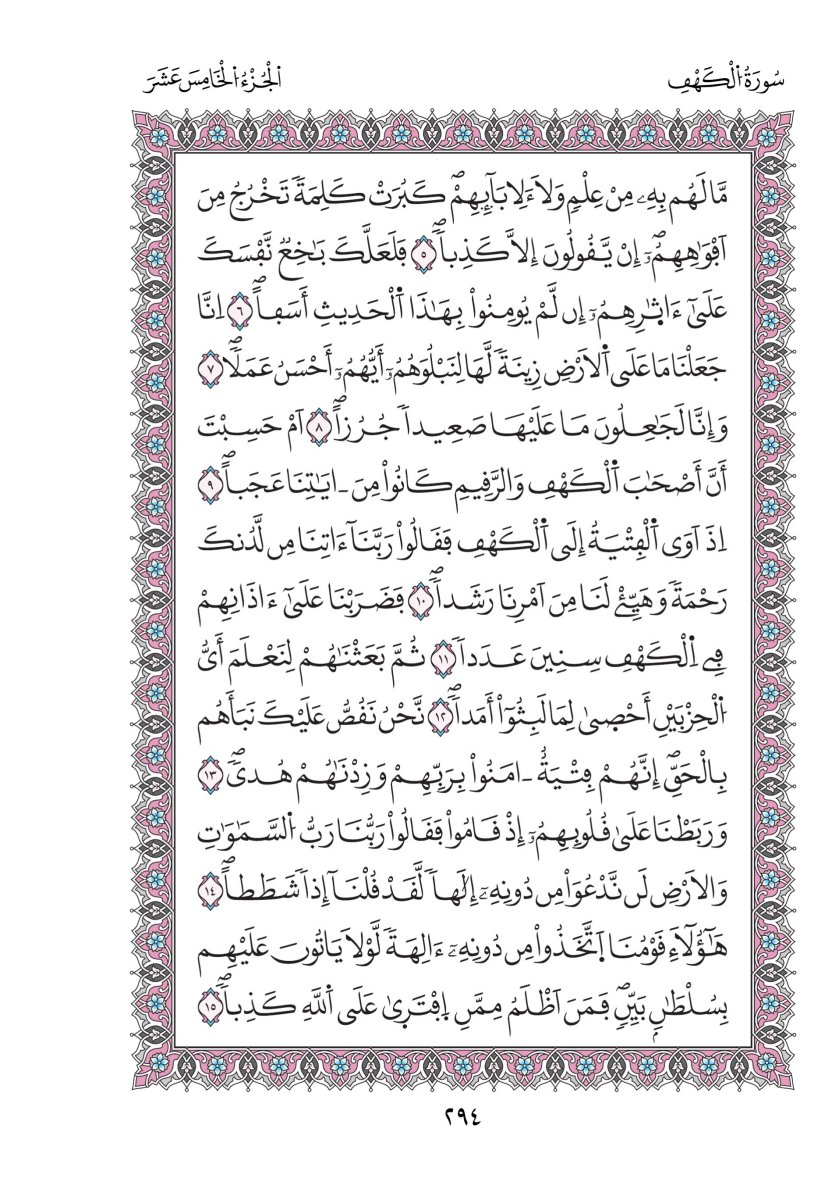 سُورَةُ اُ۬لْكَهْفِ
اَ۬لْجُزْءُ اُ۬لْخَامِسَ عَشَرَ
مَّا لَهُم بِهِۦ مِنْ عِلْمٖ وَلَا ءَلِابَآئِهِمْۖ كَبُرَتْ كَلِمَةٗ تَخْرُجُ مِنَ
اَفْوَٰهِهِمُۥٓ إِنْ يَّقُولُونَ إِلَّا كَذِباٗۖ ٥ فَلَعَلَّكَ بَٰخِعٞ نَّفْسَكَ
عَلَىٰٓ ءَاثٰ۪رِهِمُۥٓ إِن لَّمْ يُومِنُواْ بِهَٰذَا اَ۬لْحَدِيثِ أَسَفاًۖ ٦ اِنَّا
جَعَلْنَا مَا عَلَى اَ۬لَارْضِ زِينَةٗ لَّهَا لِنَبْلُوَهُمُۥٓ أَيُّهُمُۥٓ أَحْسَنُ عَمَلاٗۖ ٧
وَإِنَّا لَجَٰعِلُونَ مَا عَلَيْهَا صَعِيداٗ جُرُزاًۖ ٨ اَمْ حَسِبْتَ
أَنَّ أَصْحَٰبَ اَ۬لْكَهْفِ وَالرَّقِيمِ كَانُواْ مِنَ ـ ايَٰتِنَا عَجَباًۖ ٩
اِذَ اَوَى اَ۬لْفِتْيَةُ إِلَى اَ۬لْكَهْفِ فَقَالُواْ رَبَّنَآ ءَاتِنَا مِن لَّدُنكَ
رَحْمَةٗ وَهَيِّئْ لَنَا مِنَ اَمْرِنَا رَشَداٗۖ ١٠ فَضَرَبْنَا عَلَىٰٓ ءَاذَانِهِمْ
فِے اِ۬لْكَهْفِ سِنِينَ عَدَداٗ ١١ ثُمَّ بَعَثْنَٰهُمْ لِنَعْلَمَ أَيُّ
اُ۬لْحِزْبَيْنِ أَحْص۪يٰ لِمَا لَبِثُوٓاْ أَمَداٗۖ ١٢ نَّحْنُ نَقُصُّ عَلَيْكَ نَبَأَهُم
بِالْحَقِّۖ إِنَّهُمْ فِتْيَةٌ ـ امَنُواْ بِرَبِّهِمْ وَزِدْنَٰهُمْ هُدىٗۖ ١٣
وَرَبَطْنَا عَلَىٰ قُلُوبِهِمُۥٓ إِذْ قَامُواْ فَقَالُواْ رَبُّنَا رَبُّ اُ۬لسَّمَٰوَٰتِ
وَالَارْضِ لَن نَّدْعُوَاْ مِن دُونِهِۦٓ إِلَٰهاٗ لَّقَدْ قُلْنَآ إِذاٗ شَطَطاًۖ ١٤
هَٰٓؤُلَآءِ قَوْمُنَا اَ۪تَّخَذُواْ مِن دُونِهِۦٓ ءَالِهَةٗ لَّوْلَا يَاتُونَ عَلَيْهِم
بِسُلْطَٰنِۢ بَيِّنٖۖ فَمَنَ اَظْلَمُ مِمَّنِ اِ۪فْتَر۪يٰ عَلَى اَ۬للَّهِ كَذِباٗۖ ١٥
٢٩٤